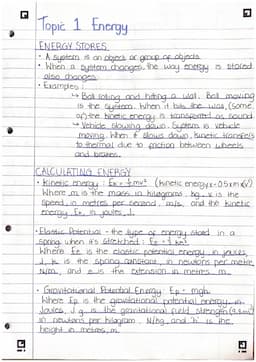 Topic 1 Energy
ENERGY STORES
• A system is an object or group of objects
• When a system changes, the way energy is stored
also changes.
• Examples:
↳ Ball rolling and hitting a wall. Ball moving
is the system. When it hits the wall, (some
of) the kinetic energy is transferred as sound
↳ Vehicle slowing down. System is vehicle
moving. When it slows down, kinetic transfers
to thermal due to friction between wheels
and brakes.
CALCULATING ENERGY
• Kinetic energy : Ek = ½mv² (kinetic energy = 0.5 x m x (v)²)
Where m is the mass in kilograms, kg, v is the
speed in metres per second, m/s, and the kinetic
energy, Ek, in joules, J.
• Elastic Potential - the type of energy stored in a
spring when it's stretched : Ee = ½ke².
Where Ee is the elastic potential energy in joules,
J, k is the spring constant in newtons per metre
N/m, and e is the extension in metres, m.
• Gravitational Potential Energy : Ep = mgh.
Where Ep is the gravitational potential energy in
Joules, J, g is the gravitational field strength (9.8m/s²)
in newtons per kilogram, N/kg, and 'h' is the
height in metres, m.